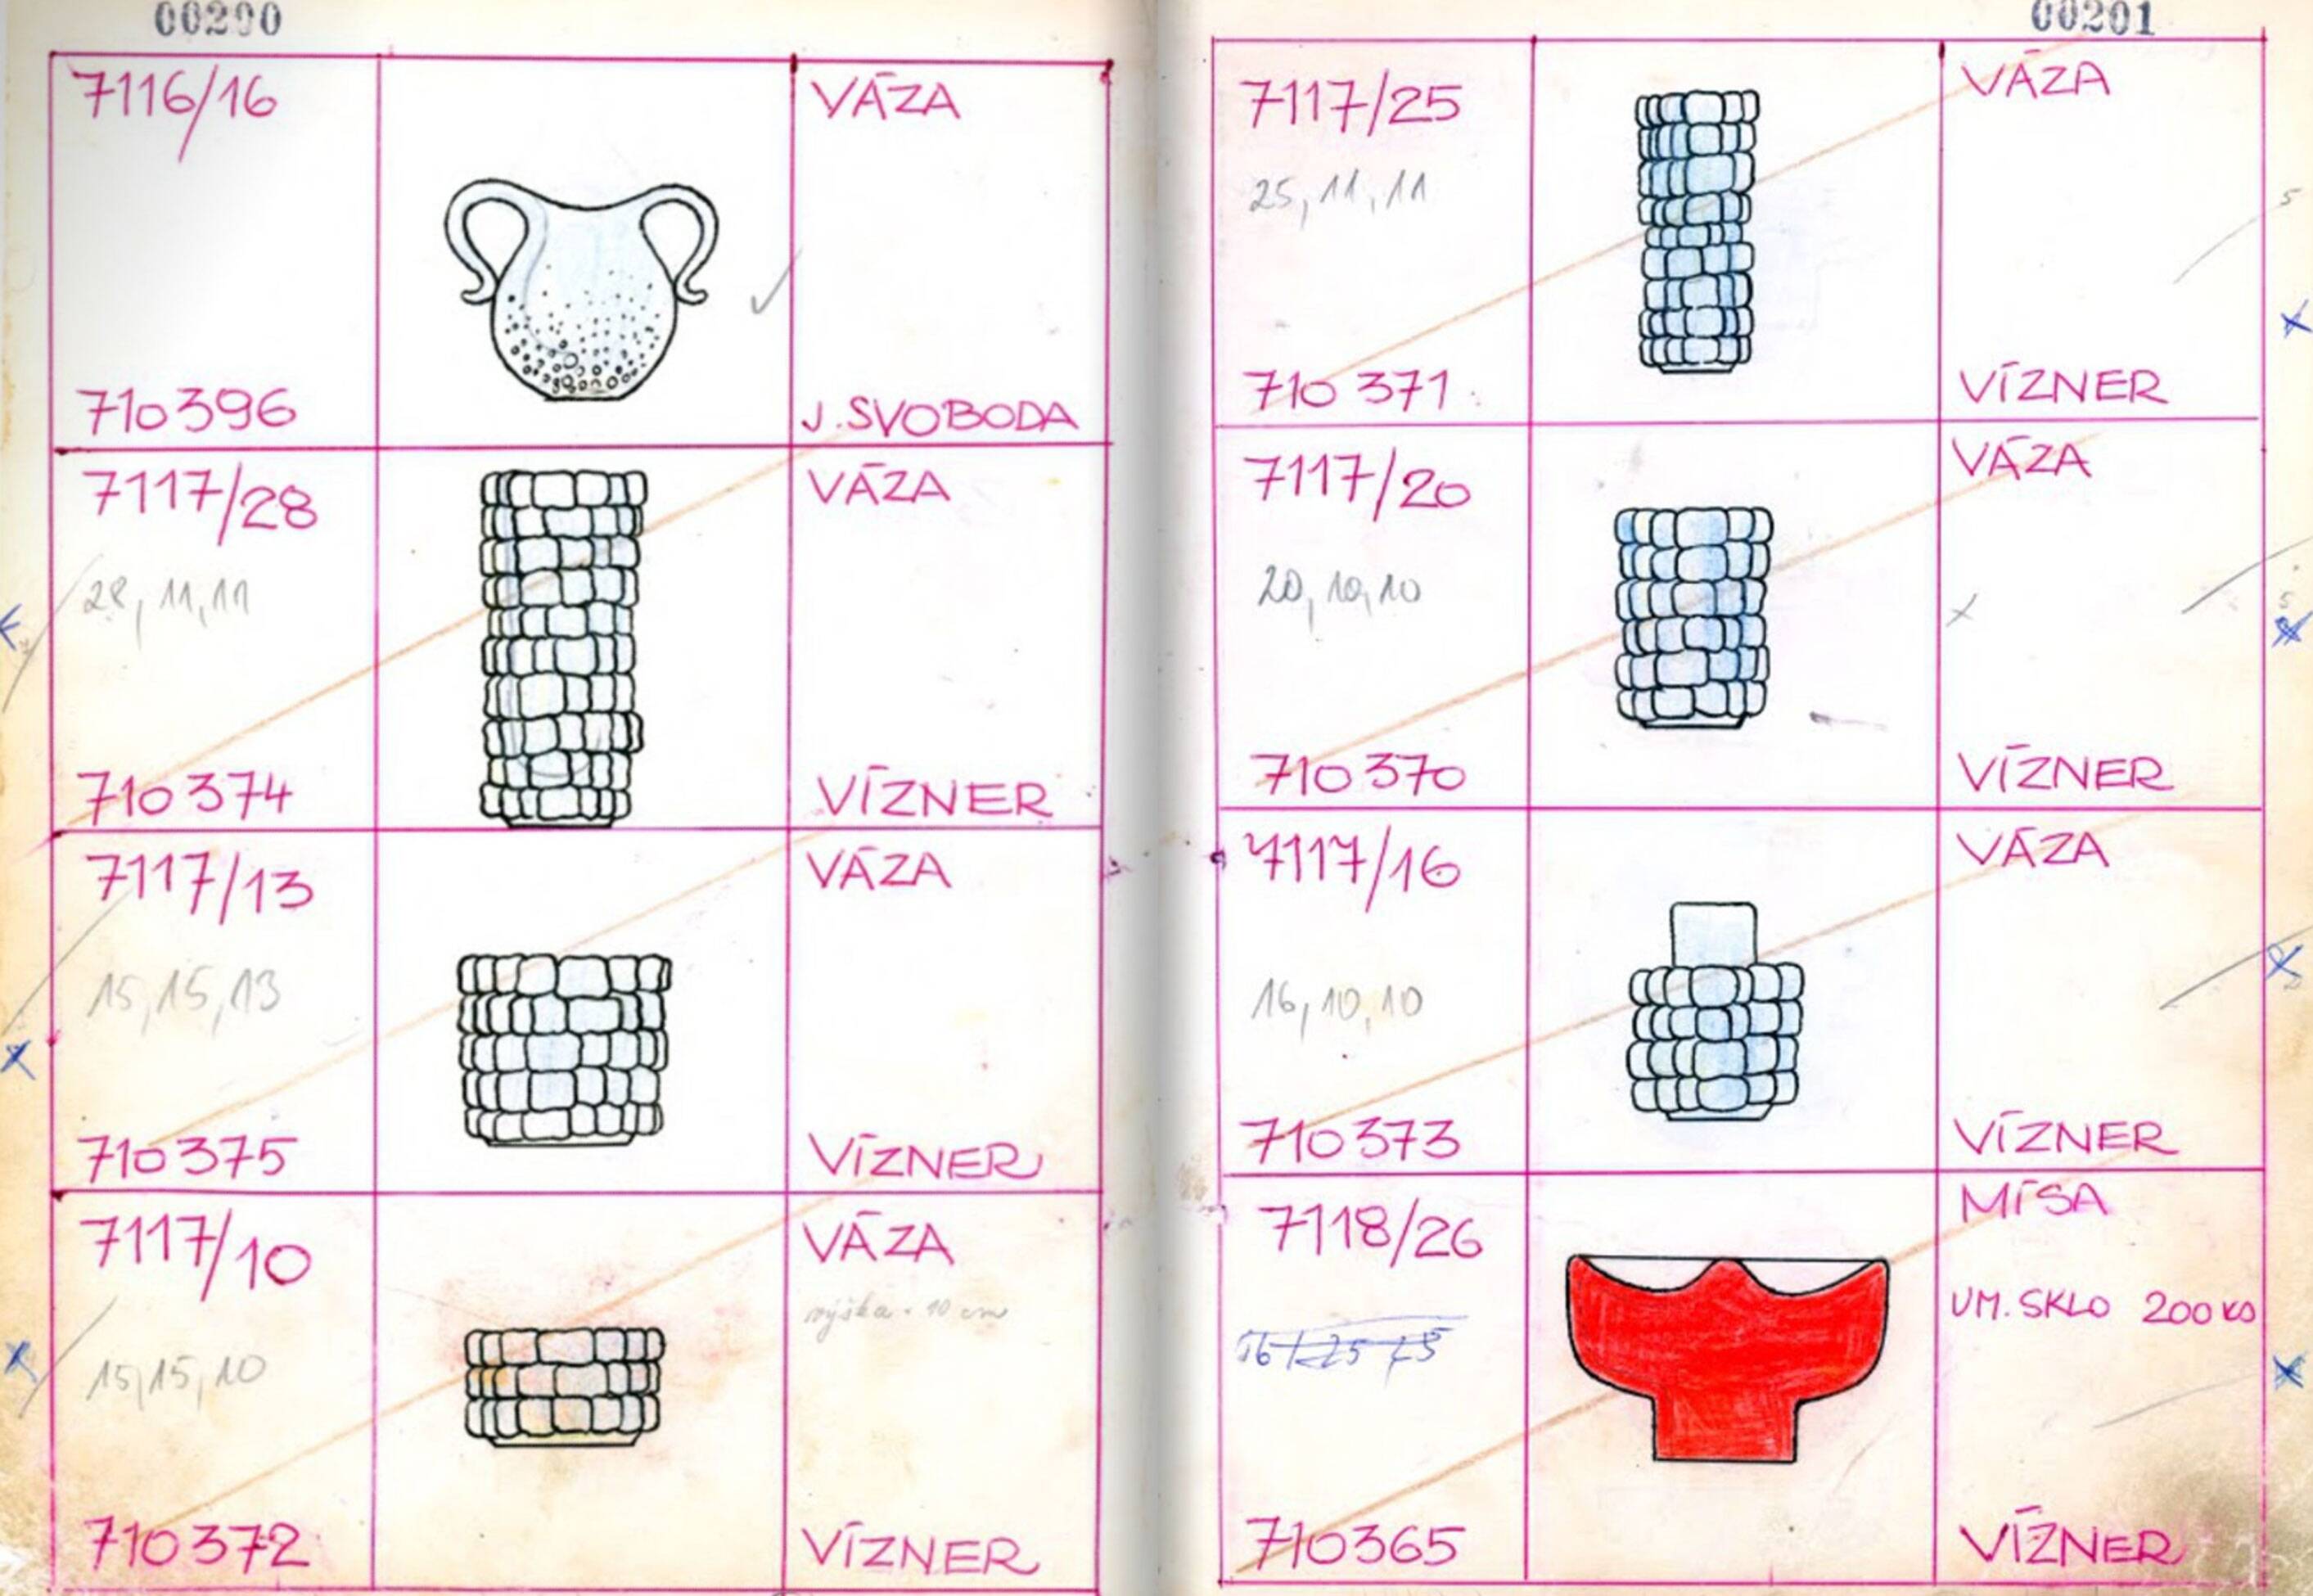 00200
7116/16
VÁZA
710396
J. SVOBODA
7117/28
VÁZA
28, 11, 11
710374
VÍZNER
7117/13
VÁZA
15, 15, 13
710375
VÍZNER
7117/10
VÁZA
výška 10 cm
15, 15, 10
710372
VÍZNER
00201
7117/25
VÁZA
25, 11, 11
710371
VÍZNER
7117/20
VÁZA
20, 10, 10
710370
VÍZNER
7117/16
VÁZA
16, 10, 10
710373
VÍZNER
7118/26
MÍSA
UM. SKLO 200 KS
710365
VÍZNER